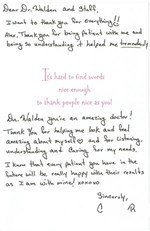 Dear Dr. Walden and Staff,
I want to thank you for everything!!
Also, Thank you for being patient with me and
being so understanding it helped me tremendously
It's hard to find words
nice enough
to thank people nice as you!
Dr. Walden you're an amazing doctor!
Thank you for helping me look and feel
amazing about myself ♡ and for listening,
understanding and caring for my needs.
I know that every patient you have in the
future will be really happy with their results
as I am with mine! xoxoxo
Sincerely,
C R